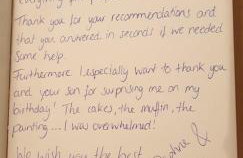 Thank you for your recommendations and
that you answered in seconds if we needed
some help.
Furthermore I especially want to thank you
and your son for surprising me on my
birthday! The cakes, the muffin, the
painting.... I was overwhelmed!
We wish you the best
&